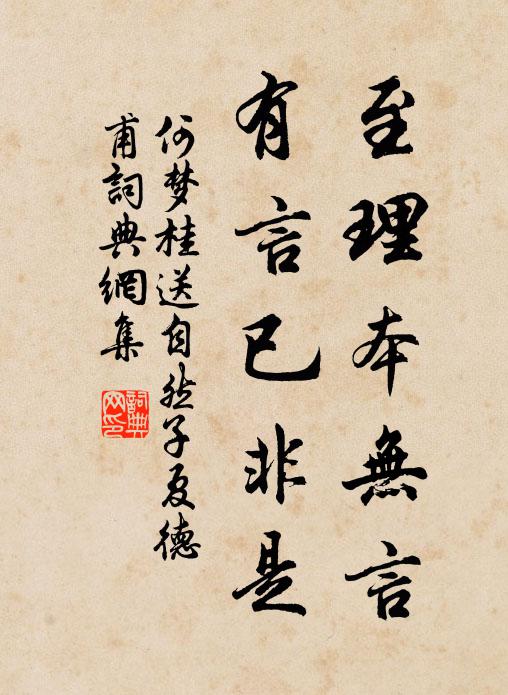 至理本無言
有言已非是
何梦桂送自然子夏德
甫詞典網集
詞典
网印